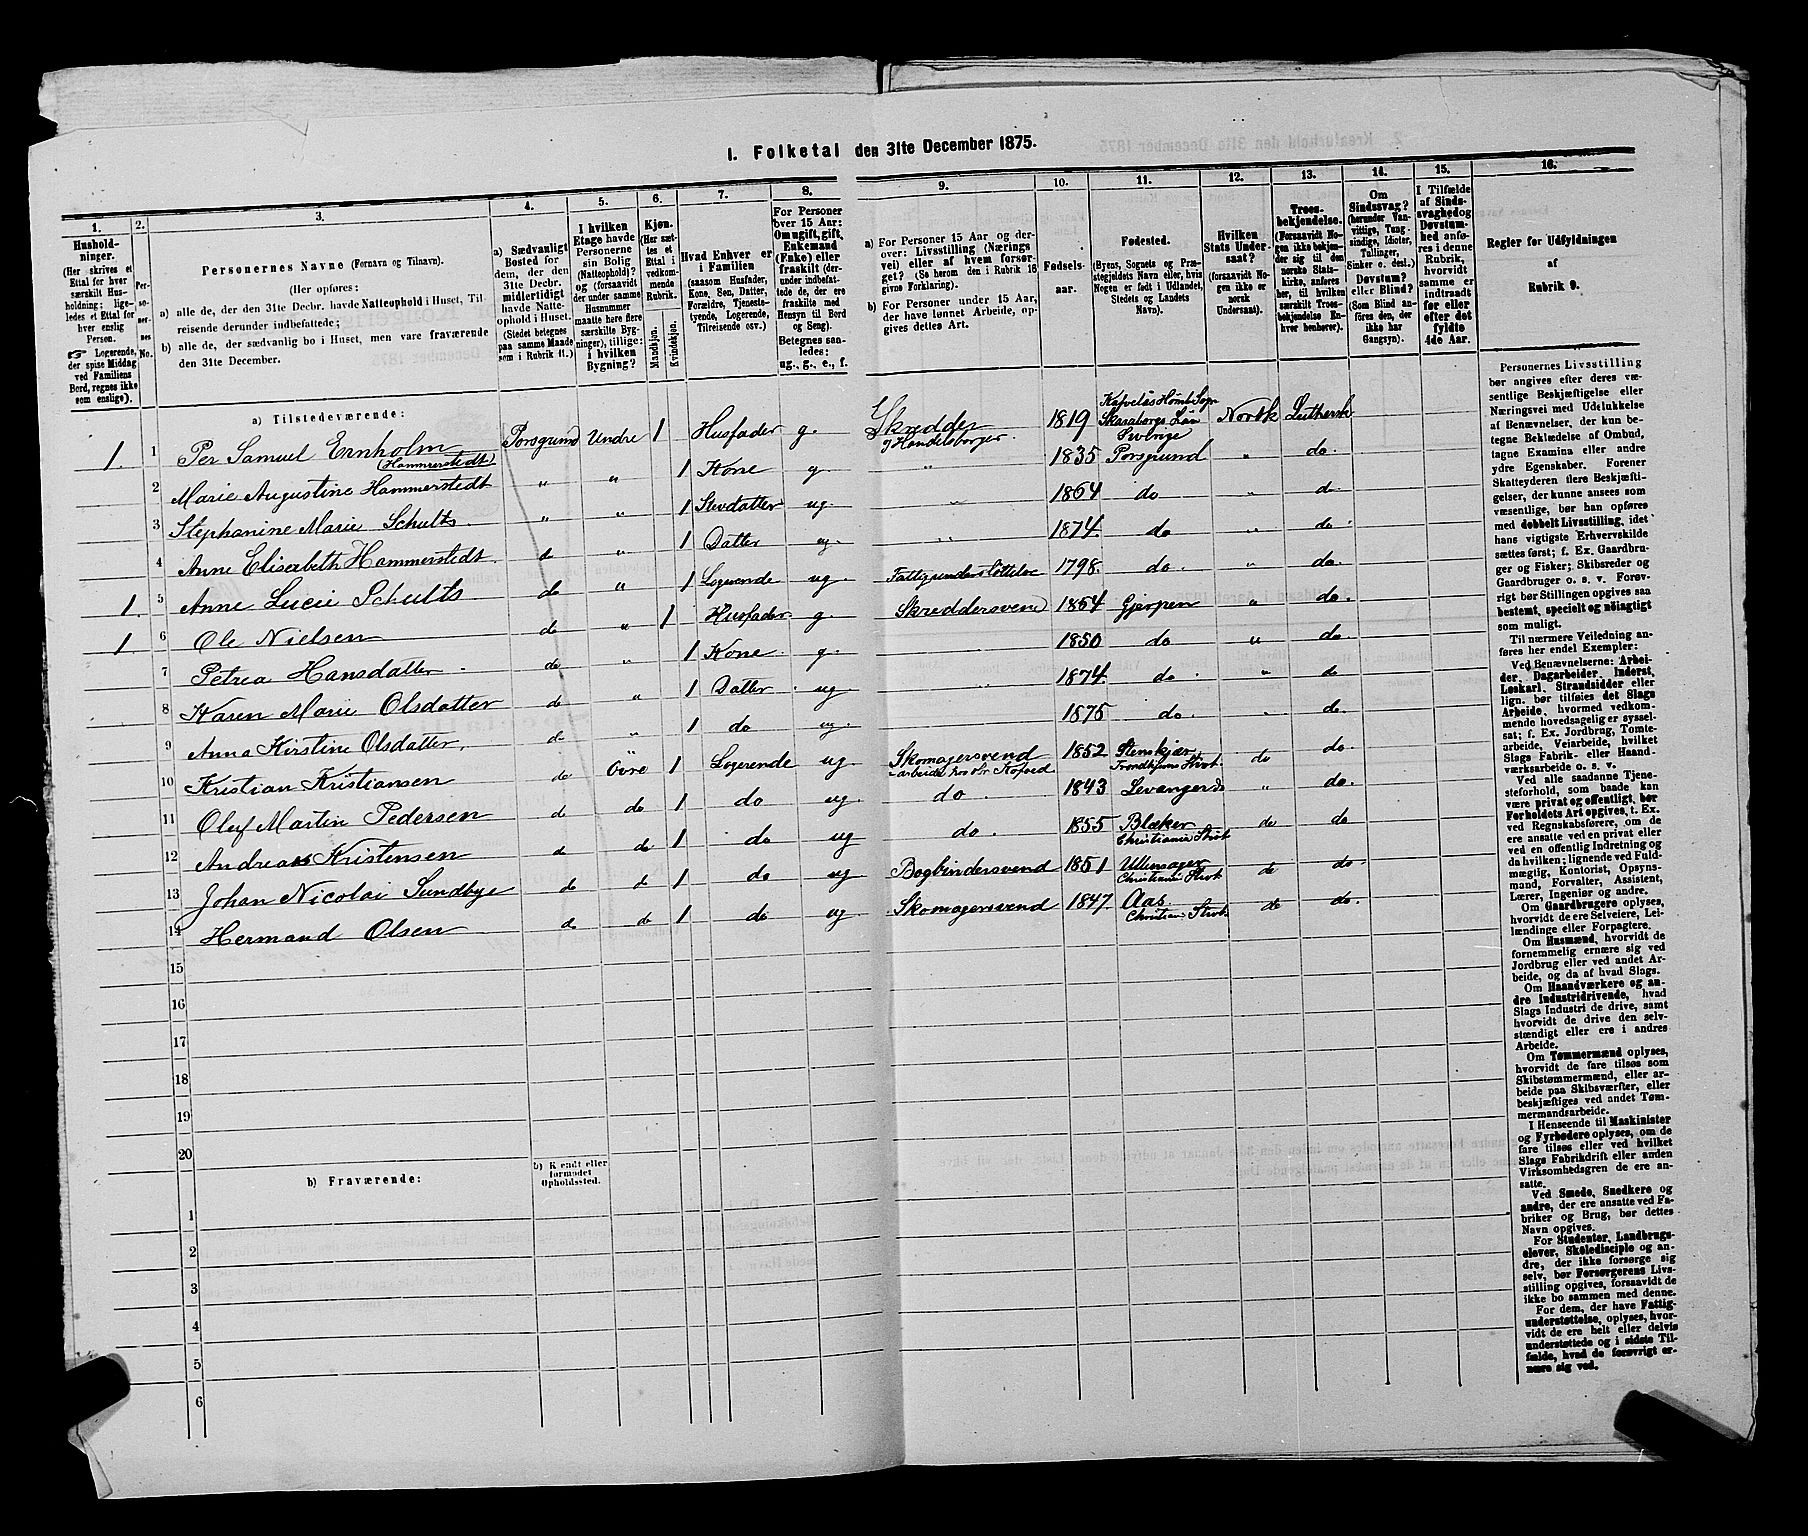 1. Folketal den 31te December 1875.
1.
Hushold-
ninger.
(Her skrives et
Ettal for hver
særskilt Hus-
holdning; lige-
ledes et Ettal for
hver enslig
Person.
☞ Logerende,
der spise Middag
ved Familiens
Bord, regnes ikke
som enslige).
2.
Per-
so-
ner-
nes
No.
3.
Personernes Navne (Fornavn og Tilnavn).
(Her opføres:
a) alle de, der den 31te Decbr. havde Natteophold i Huset, Til-
reisende derunder indbefattede;
b) alle de, der sædvanlig bo i Huset, men vare fraværende
den 31te December.
4.
a) Sædvanligt
Bosted for
dem, der den
31te Decbr.
midlertidigt
havde Natte-
ophold i Huset.
(Stedet betegnes
paa samme Maade
som i Rubrik 11.)
5.
I hvilken
Etage havde
Personerne
sin Bolig
(Natteophold)?
og (forsaavidt
der under samme
Husnummer
maatte høre flere
særskilte Byg-
ninger), tillige:
i hvilken
Bygning?
6.
Kjøn.
(Her sæt-
tes et
Ettal i
vedkom-
mende
Rubrik.
Mandkjøn.
Kvindekjøn.
7.
Hvad Enhver er
i Familien
(saasom Husfader,
Kone, Søn, Datter,
Forældre, Tjeneste-
tyende, Logerende,
Tilreisende osv.)
8.
For Personer
over 15 Aar:
Om ugift, gift,
Enkemand
(Enke) eller
fraskilt (der-
under indbefat-
tede de, der ere
fraskilte med
Hensyn til Bord
og Seng).
Betegnes saa-
ledes:
ug., g., e., f.
9.
a) For Personer 15 Aar og der-
over: Livsstilling (Nærings-
vei) eller af hvem forsør-
get? (Se herom den i Rubrik 16
givne Forklaring).
b) For Personer under 15 Aar,
der have lønnet Arbeide, op-
gives dettes Art.
10.
Fødsels-
aar.
11.
Fødested.
(Byens, Sognets og Præ-
stegjeldets Navn eller, hvis
Nogen er født i Udlandet,
Stedets og Landets
Navn).
12.
Hvilken
Stats Under-
saat?
(forsaavidt No-
gen ikke er
norsk
Undersaat).
13.
Troes-
bekjendelse.
(Forsaavidt No-
gen ikke bekjen-
der sig til den
norske Stats-
kirke, anføres
her, til hvilken
særskilt Troes-
bekjendelse En-
hver henhører).
14.
Om
Sindssvag?
(herunder Van-
vittige, Tung-
sindige, Idioter,
Tullinger,
Sinker o. desl.)
Døvstum?
eller Blind?
(Som Blind an-
føres den, der
ikke har
Gangsyn).
15.
I Tilfælde
af Sinds-
svaghed og
Døvstum-
hed anfø-
res i denne
Rubrik,
hvorvidt
samme er
indtraadt
før eller
efter det
fyldte
4de Aar.
16.
Regler for Udfyldningen
af
Rubrik 9.
a) Tilstedeværende:
1 1 Per Samuel Ernholm (Hammerstedt) Porsgrund Undre 1 Husfader g. Skredder og Handelsborger 1819 Skaraborgs Län Sverige Norsk Luthersk
2 Marie Augustine Hammerstedt " " 1 Kone g " 1835 Porsgrund " do.
3 Stephanine Marie Schults " " 1 Stevdatter ug. " 1864 do " do
4 Anne Elisabeth Hammerstedt do " 1 Datter ug. " 1874. do " do
1 5 Anne Lucie Schults do " 1 Logerende ug. Fattigunderstöttelse 1798. do. " do.
1 6 Ole Nielsen do " 1 Husfader g. Skreddersvend 1854 Gjerpen " do
7 Petrea Hansdatter do " 1 Kone g. 1850 do " do.
8 Karen Marie Olsdatter do " 1 Datter ug. " 1874. do. " do
9 Anna Kirstine Olsdatter. do " 1 do ug. 1875 do. " do.
10 Kristian Kristiansen do Övre 1 Logerende ug Skomagersvend 1852 Stenkjær Trondhjems Stivt. do do.
11 Oluf Martin Pedersen do do 1 do ug. do. 1843 Levanger do " do.
12 Andreas Kristensen do do 1 do ug do. 1855 Blaker Christiania Stivt do do
13 Johan Nicolai Sundbye do do 1 do ug Bogbindersvend 1851 Ullensager Christiania Stivt. do do.
14 Hermand Olsen do do 1 do ug Skomagersvend 1847. Aas Christian. Stivt. do do.
15
16
17
18
19
20
b) Fraværende:
b) Kjendt eller
formodet
Opholdssted.
1
2
3
4
5
6
Personernes Livsstilling
bør angives efter deres væ-
sentlige Beskjæftigelse eller
Næringsvei med Udelukkelse
af Benævnelser, der kun be-
tegne Beklædelse af Ombud,
tagne Examina eller andre
ydre Egenskaber. Forener
Skatteyderen flere Beskjæfti-
gelser, der kunne ansees som
væsentlige, bør han opføres
med dobbelt Livsstilling, idet
hans vigtigste Erhvervskilde
sættes først; f. Ex. Gaardbru-
ger og Fisker; Skibsreder og
Gaardbruger o. s. v. Forøv-
rigt bør Stillingen opgives saa
bestemt, specielt og nøiagtigt
som muligt.
Til nærmere Veiledning an-
føres her endel Exempler:
Ved Benævnelserne: Arbei-
der, Dagarbeider, Inderst,
Løskarl, Strandsidder eller
lign. bør tilføies det Slags
Arbeide, hvormed vedkom-
mende hovedsagelig er syssel-
sat; f. Ex. Jordbrug, Tomte-
arbeide, Veiarbeide, hvilket
Slags Fabrik- eller Haand-
værksarbeide o. s. v.
Ved alle saadanne Tjene-
steforhold, som baade kan
være privat og offentligt, bør
Forholdets Art opgives, t. Ex.
ved Regnskabsførere, om de
ere ansatte ved en privat eller
ved en offentlig Indretning og
da hvilken; lignende ved Fuld-
mægtig, Kontorist, Opsyns-
mand, Forvalter, Assistent,
Lærer, Ingeniør og andre.
Om Gaardbrugere oplyses,
hvorvidt de ere Selveiere, Lei-
lændinge eller Forpagtere.
Om Husmænd, hvorvidt de
fornemmelig ernære sig ved
Jordbrug eller ved andet Ar-
beide, og da af hvad Slags.
Om Haandværkere og an-
dre Industridrivende, hvad
Slags Industri de drive, samt
hvorvidt de drive den selv-
stændigt eller ere i andres
Arbeide.
Om Tømmermænd oplyses,
hvorvidt de fare tilsøs som
Skibstømmermænd, eller ar-
beide paa Skibsværfter, eller
beskjæftiges ved andet Tøm-
mermandsarbeide.
I Henseende til Maskinister
og Fyrbødere oplyses, om de
fare tilsøs eller ved hvilket
Slags Fabrikdrift eller anden
Virksomhedsgren de ere an-
satte.
Ved Smede, Snedkere og
andre, der ere ansatte ved Fa-
briker og Brug, bør dettes
Navn opgives.
For Studenter, Landbrugs-
elever, Skoledisciple og an-
dre, der ikke forsørge sig
selv, bør Forsørgerens Livs-
stilling opgives, forsaavidt de
ikke bo sammen med denne.
For dem, der have Fattig-
understøttelse, oplyses, hvor-
vidt de ere helt eller delvis
understøttede og i sidste Til-
fælde, hvad de forøvrigt er-
nære sig ved.